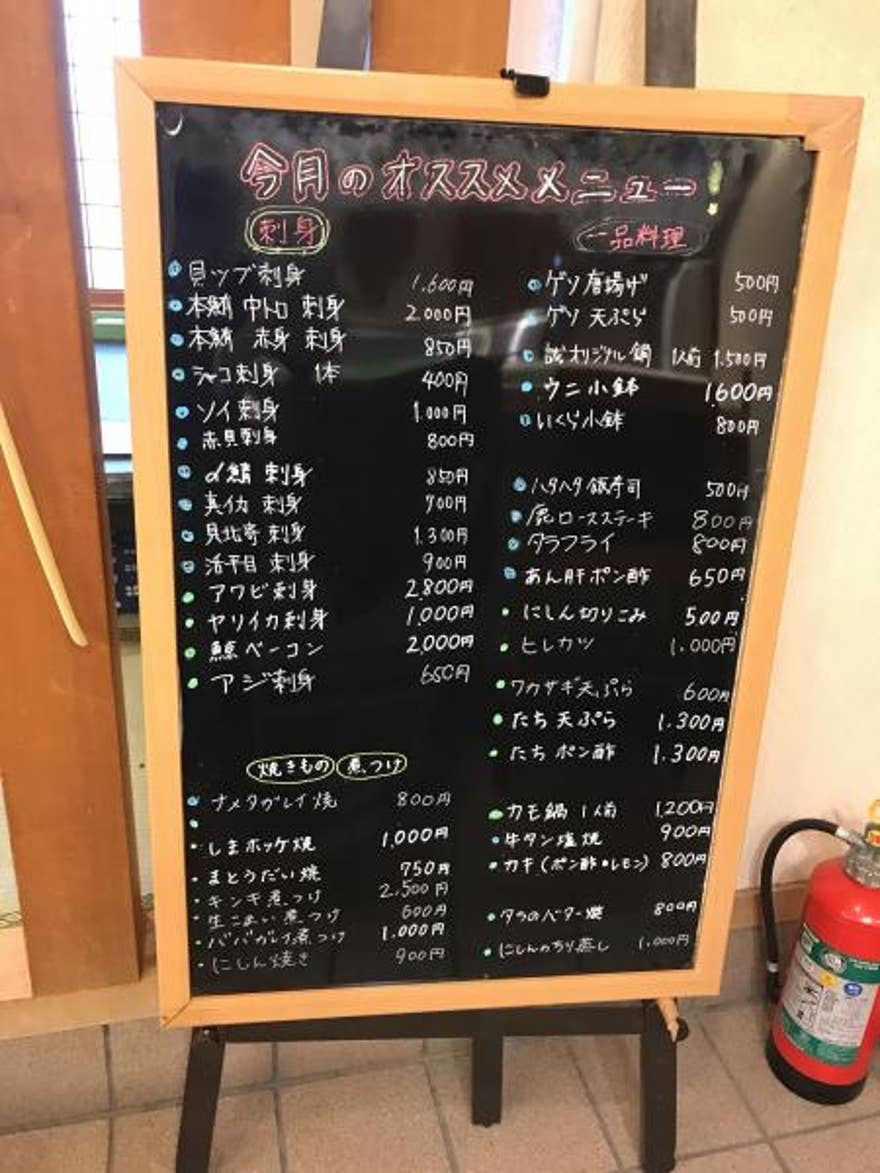 今月のオススメメニュー
刺身
貝ツブ刺身 1.600円
本鮪 中トロ 刺身 2.000円
本鮪 赤身 刺身 850円
シャコ刺身 1本 400円
ソイ刺身 1.000円
赤貝刺身 800円
〆鯖 刺身 850円
真イカ 刺身 700円
北寄 刺身 1.300円
活平目 刺身 900円
アワビ刺身 2.800円
ヤリイカ刺身 1,000円
鯨ベーコン 2,000円
アジ刺身 650円
焼きもの 煮つけ
ナメタガレイ焼 800円
しまホッケ焼 1,000円
まとうだい焼 750円
キンキ煮つけ 2,500円
生こまい煮つけ 600円
ババガレイ煮つけ 1.000円
にしん焼き 900円
一品料理
ゲソ唐揚げ 500円
ゲソ 天ぷら 500円
オリジナル鍋 1人前 1.500円
ウニ小鉢 1.600円
いくら小鉢 800円
ハタハタ飯寿司 500円
鹿ロースステーキ 800円
タラフライ 800円
あん肝ポン酢 650円
にしん切りこみ 500円
ヒレカツ 1.000円
ワカサギ天ぷら 600円
たち天ぷら 1.300円
たち ポン酢 1.300円
カモ鍋 1人前 1,200円
牛タン塩焼 900円
カキ(ポン酢・レモン) 800円
タラのバター焼 800円
にしんのちり蒸し 1.000円